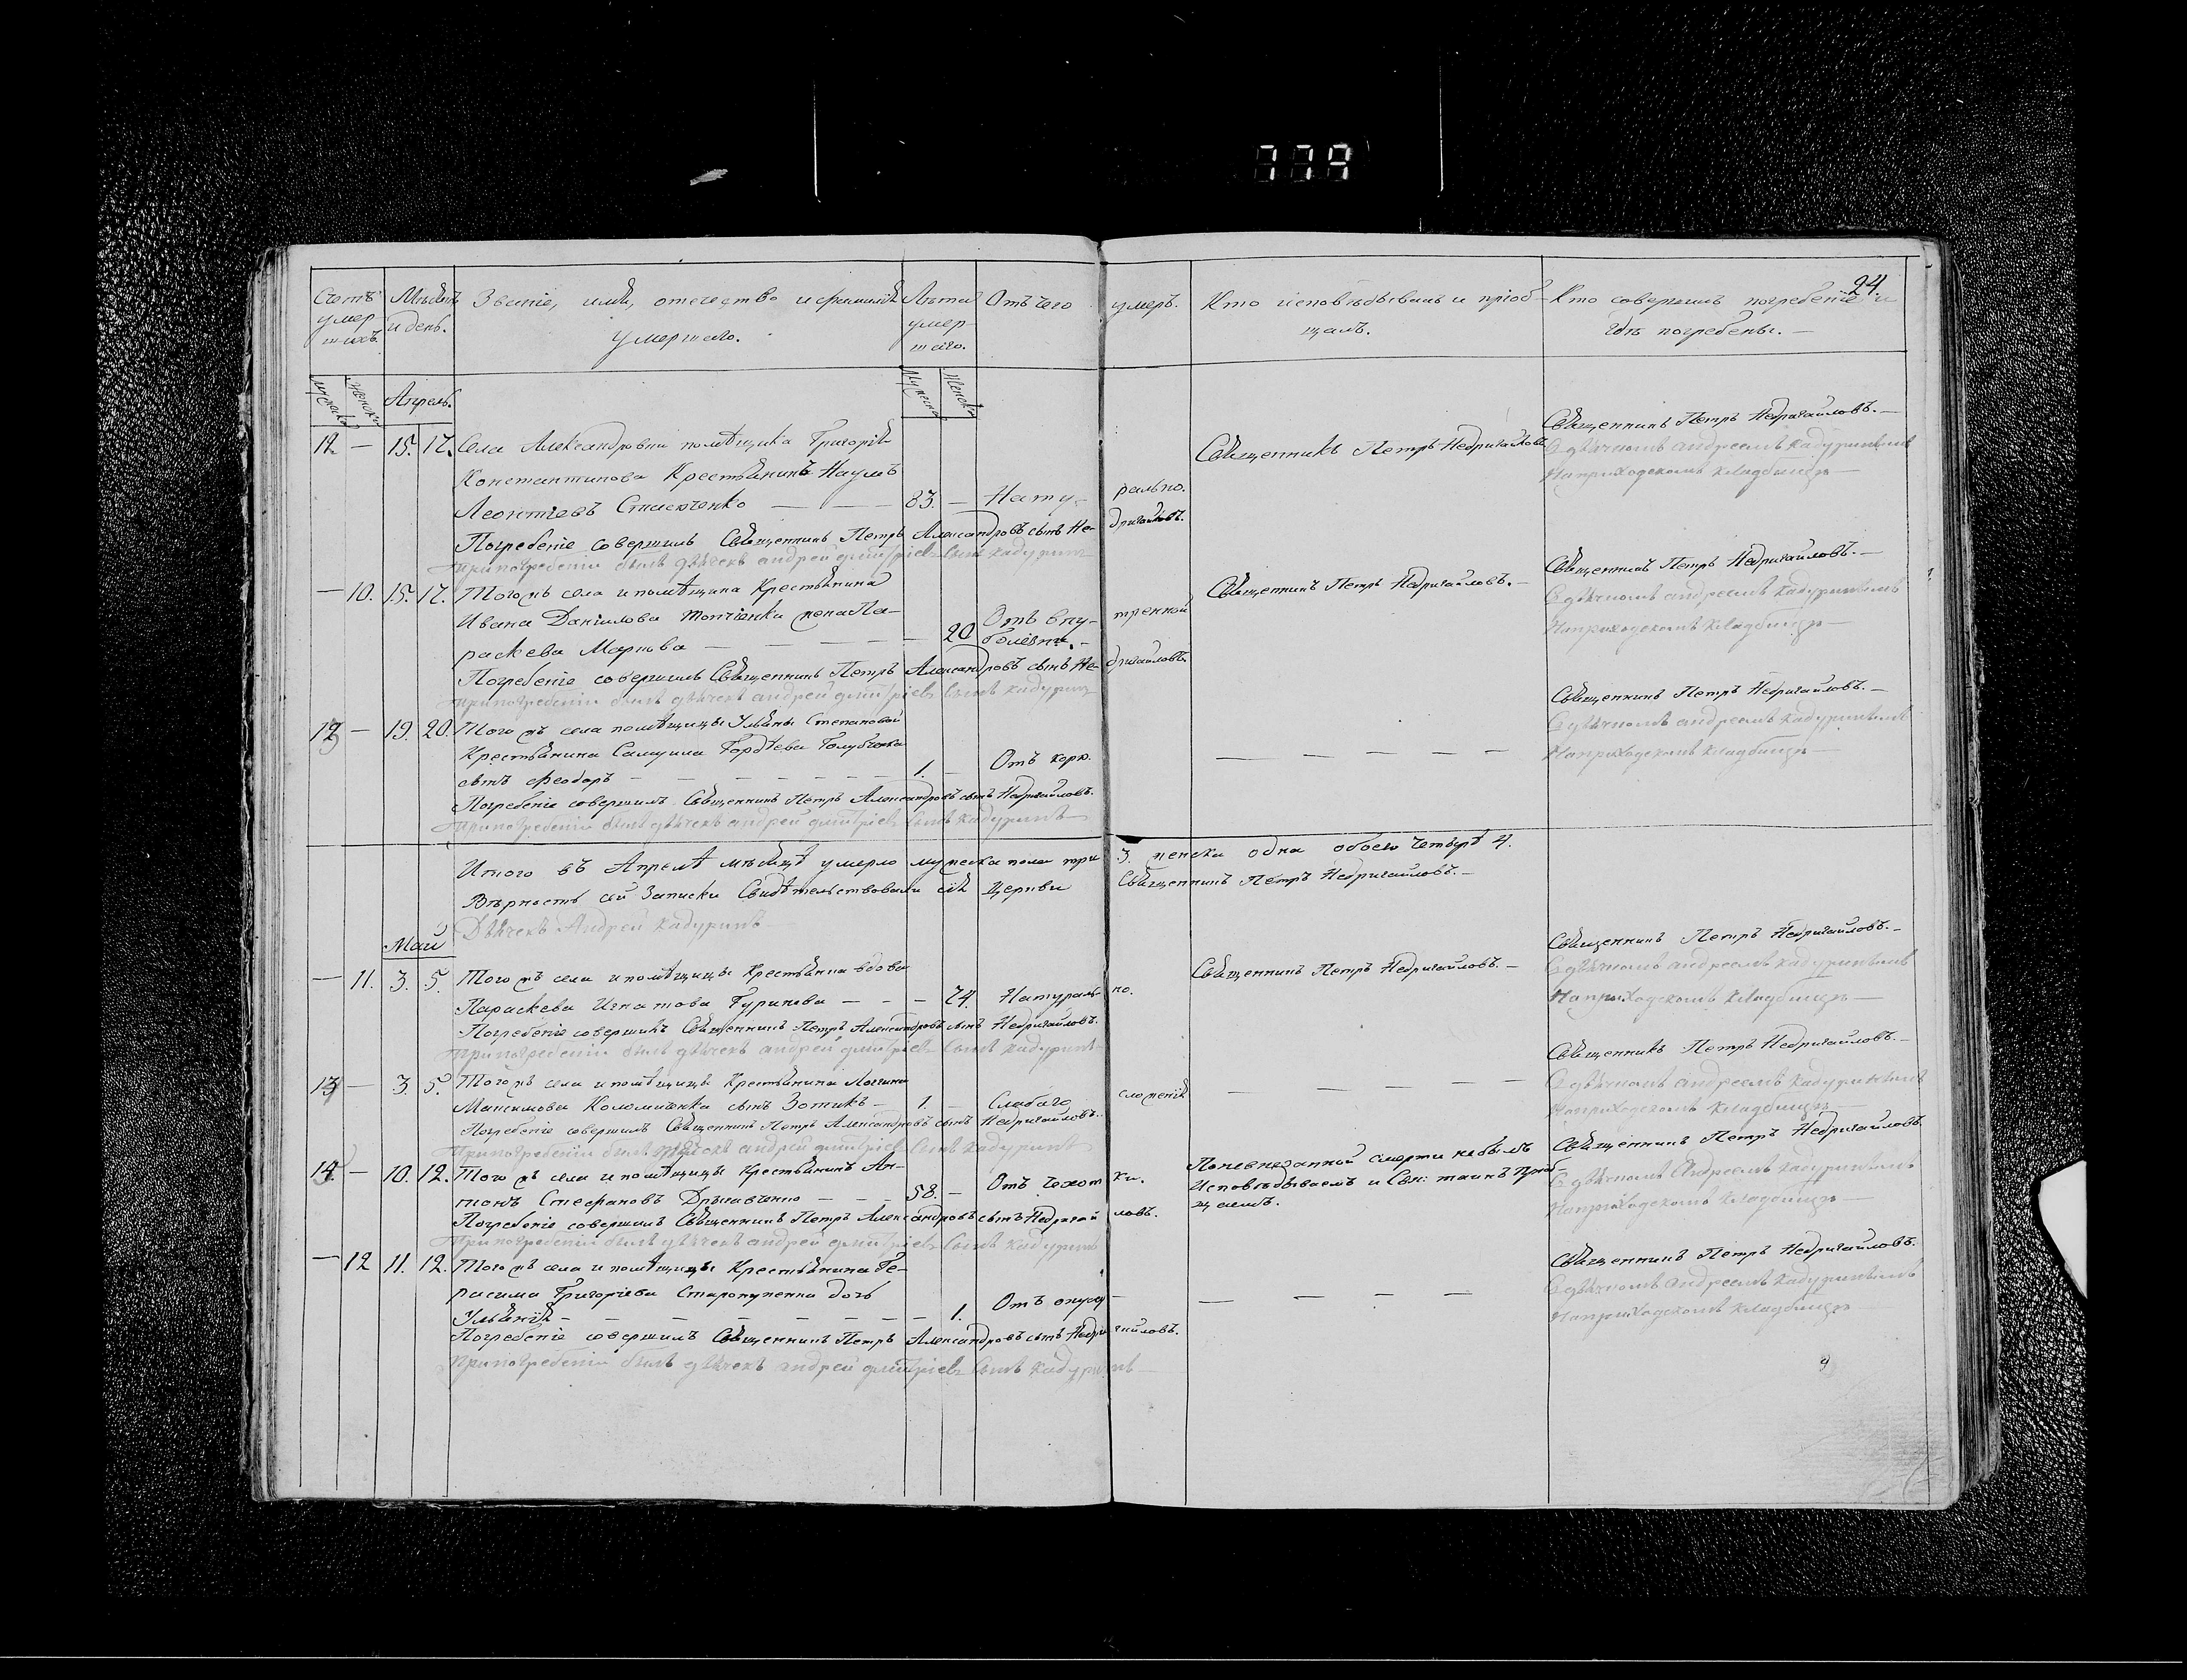 779
24.
Счетъ умер шихъ.
Мѣсяцъ и день.
Званіе, имя, отечество и фамилія
умершаго.
Лѣта умер шаго.
Отъ чего умеръ.
Кто исповѣдывалъ и пріоб-
щалъ.
Кто совершилъ погребеніе и
гдѣ погребены. —
Апрель.
12 — 15. 17. Села Александровки помѣщика Григорія
Константинова Крестьянинъ Наумъ
Леонтіевъ — — — 83. — Нату- рально.
Погребеніе совершилъ Священникъ Петръ Александровъ сынъ Не- дригайловъ.
при погребеніи былъ дьячекъ андрей дмитріевъ сынъ кадуринъ
Священникъ Петръ Недригайловъ
Священникъ Петръ Недригайловъ. —
Съ дьячкомъ андреемъ кадуринымъ
На приходскомъ кладбищѣ —
— 10. 15. 17. Того жъ села и помѣщика Крестьянина
Ивана Данілова жена Па-
раскева Маркова — — — — 20 Отъ вну- тренной
болѣзни. —
Погребеніе совершилъ Священникъ Петръ Александровъ сынъ Не- дригайловъ.
при погребеніи былъ дьячекъ андрей дмитріевъ сынъ кадуринъ
Священникъ Петръ Недригайловъ. —
Священникъ Петръ Недригайловъ. —
Съ дьячкомъ андреемъ кадуринымъ
На приходскомъ кладбищѣ —
— 19. 20. Того жъ села помѣщицы Ульяны Степановой
Крестьянина Самуила Гордѣева
сынъ Феодоръ — — — — — — 1. — Отъ кори.
Погребеніе совершилъ Священникъ Петръ Александровъ сынъ Недригайловъ.
При погребеніи былъ дьячекъ андрей дмитріевъ сынъ кадуринъ
— — — — —
Священникъ Петръ Недригайловъ. —
Съ дьячкомъ андреемъ кадуринымъ
На приходскомъ кладбищѣ —
Итого въ Апрелѣ мѣсяцѣ умерло мужеска пола три 3. женска одна обоего четыре 4.
Вѣрность сей Записки Свидѣтельствовали сея Церкви Священникъ Петръ Недригайловъ. —
Дьячекъ Андрей Кадуринъ
Май
— 11. 3. 5. Того жъ села и помѣщицы Крестьянка вдова
Параскева Игнатова — — — 74. Натураль- но.
Погребеніе совершилъ Священникъ Петръ Александровъ сынъ Недригайловъ.
при погребеніи былъ дьячекъ андрей дмитріевъ сынъ кадуринъ
Священникъ Петръ Недригайловъ. —
Священникъ Петръ Недригайловъ. —
Съ дьячкомъ андреемъ кадуринымъ
На приходскомъ кладбищѣ —
— 3. 5. Того жъ села и помѣщицы Крестьянина
Максимова сынъ Зотикъ — 1. — Слабаго сложенія
Погребеніе совершилъ Священникъ Петръ Александровъ сынъ Недригайловъ.
При погребеніи былъ дьячекъ андрей дмитріевъ сынъ кадуринъ
— — — — —
Священникъ Петръ Недригайловъ. —
Съ дьячкомъ андреемъ кадуринымъ
На приходскомъ кладбищѣ —
— 10. 12. Того жъ села и помѣщицы Крестьянинъ Ан-
тонъ Стефановъ — — — 58. — Отъ чахот ки.
Погребеніе совершилъ Священникъ Петръ Александровъ сынъ Недригай ловъ.
При погребеніи былъ дьячекъ андрей дмитріевъ сынъ кадуринъ
По невнезапной смерти небылъ
Исповѣдываемъ и Свя: таинъ Пріоб-
щаемъ.
Священникъ Петръ Недригайловъ.
Съ дьячкомъ Андреемъ кадуринымъ
На приходскомъ кладбищѣ —
— 12 11. 12. Того жъ села и помѣщицы Крестьянина Ге-
расима Григоріева дочь
Ульянія — — — — — — — 1. Отъ
Погребеніе совершилъ Священникъ Петръ Александровъ сынъ Недри гайловъ.
При погребеніи былъ дьячекъ андрей дмитріевъ сынъ кадуринъ —
— — — —
Священникъ Петръ Недригайловъ.
Съ дьячкомъ андреемъ кадуринымъ
На приходскомъ кладбищѣ